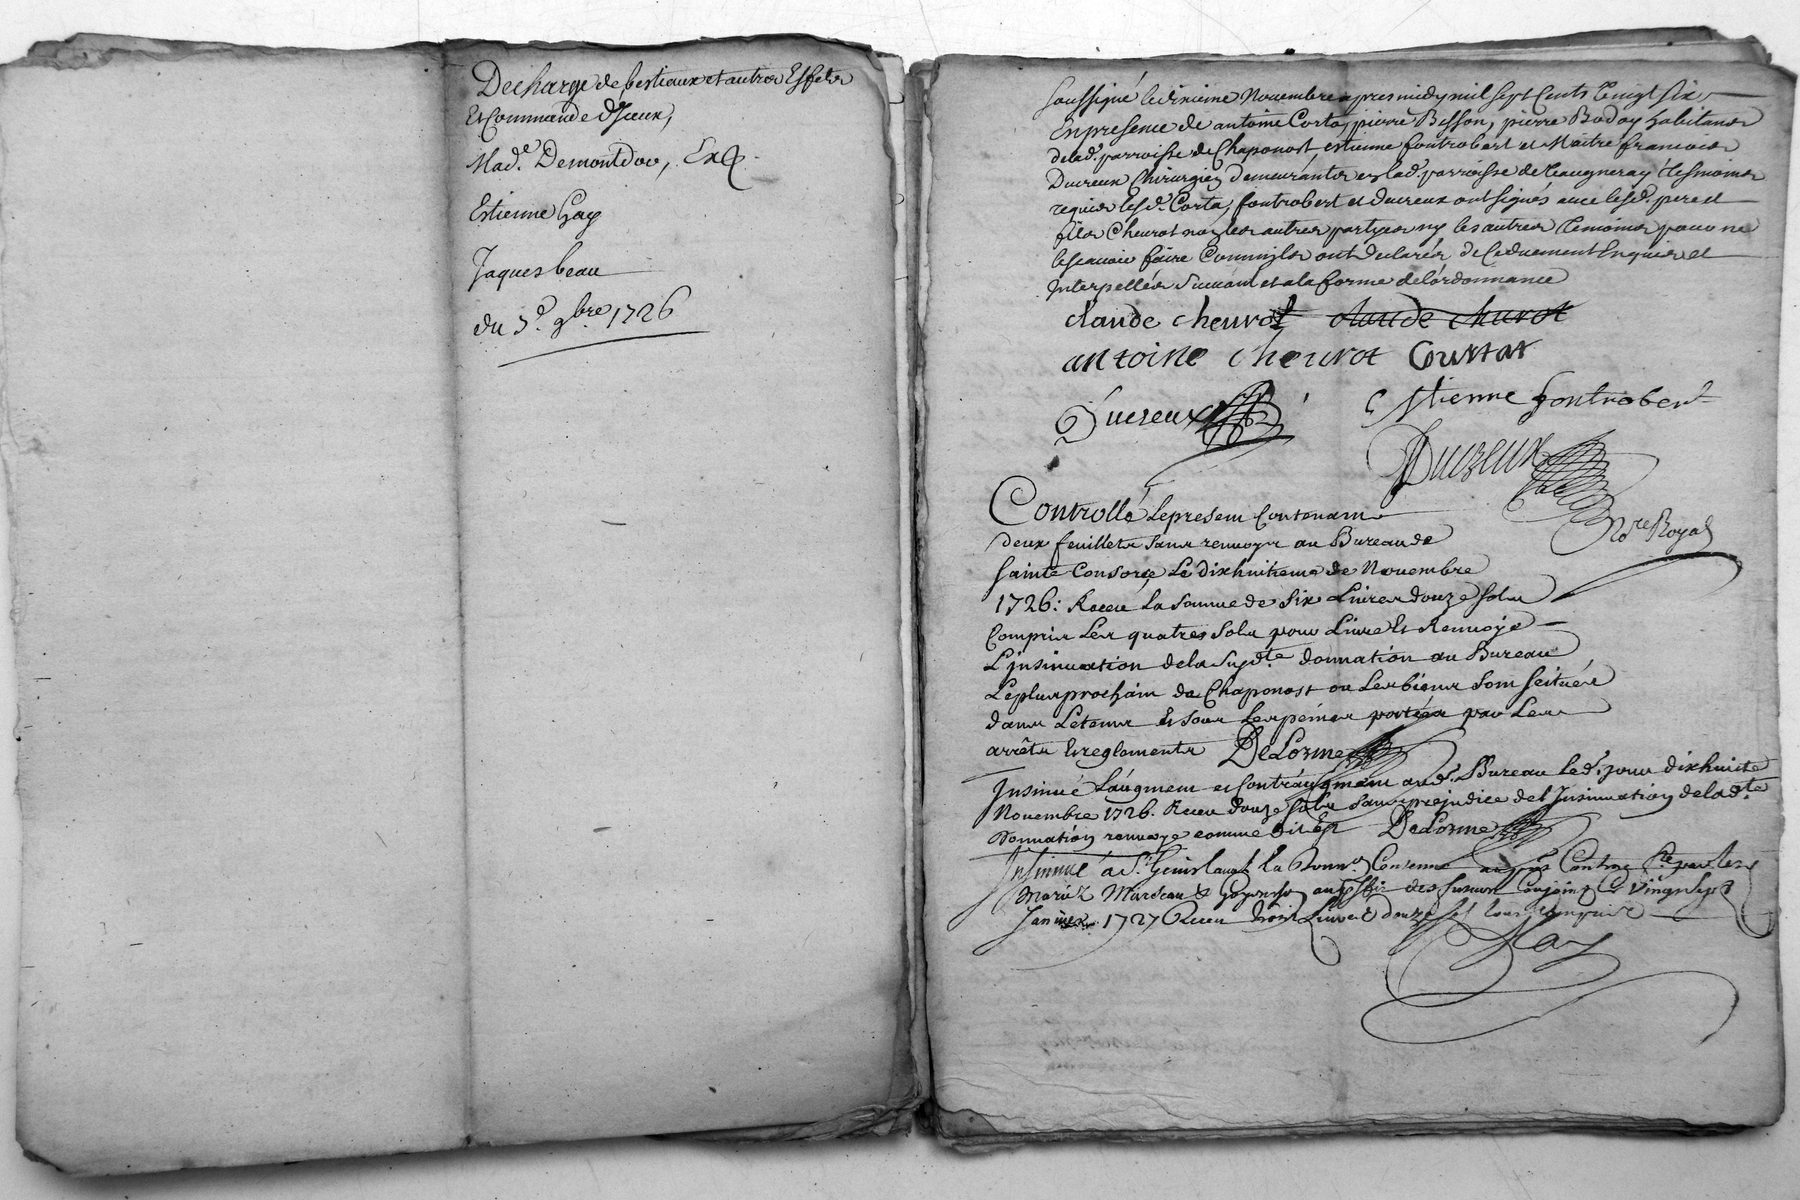 Decharge de bestiaux et autres Effets
Et Commande d'Iceux,
Mad.e Demontdor,
Estienne Gay
Jaques beau
du 3.e 9bre 1726
soussigné le dixieme Novembre apres midy mil sept Cents Vingt six
En presence de antoine Corta, pierre Besson, pierre Boday habitants
de lad. parroisse de Chaponost, estienne fontrobert et Maitre francois
Ducreux Chirurgien demeurants en lad. parroisse de Vaugneray tesmoins
requis lesd. Corta, fontrobert et Ducreux ont signés avec lesd. pere et
fils Cheurot non les autres partyes ny les autres temoins pour ne
le scauoir faire Comm'ils ont declarés de Ce duement Enquis et
Interpellés suiuant et a la forme de l'ordonnance
claude cheurot claude churot
antoine cheurot Courtat
Ducreux Estienne fontrobert
Ducreux
No.re Royal
Controllé le present Contenant
deux feuillets sans renvoye au Bureau de
sainte Consorce Le dixhuitieme de Novembre
1726: Receu La somme de six Liures douze sols
Compris Les quatres sols pour Liure Et Renuoyé
L'insinuation de la susd.te donnation au Bureau
Le plus prochain de Chaponost ou Les biens sont scitués
dans Le tems Et sous Les peines portées par Les
arrêts Et reglements DeLorme
Insinué L'augment et Contr'augment aud. Bureau Led. jour dixhuite
Novembre 1726. Receu douze sols sans prejudice de l'Insinuation de lad.te
Donnation renuoyé comme dit Est DeLorme
Insinué á S.t Genis laual la Donn.on Contenue au pnt Contract f.te par les
Mariéz
Janvier 1727 Receu trois Livres douze sols